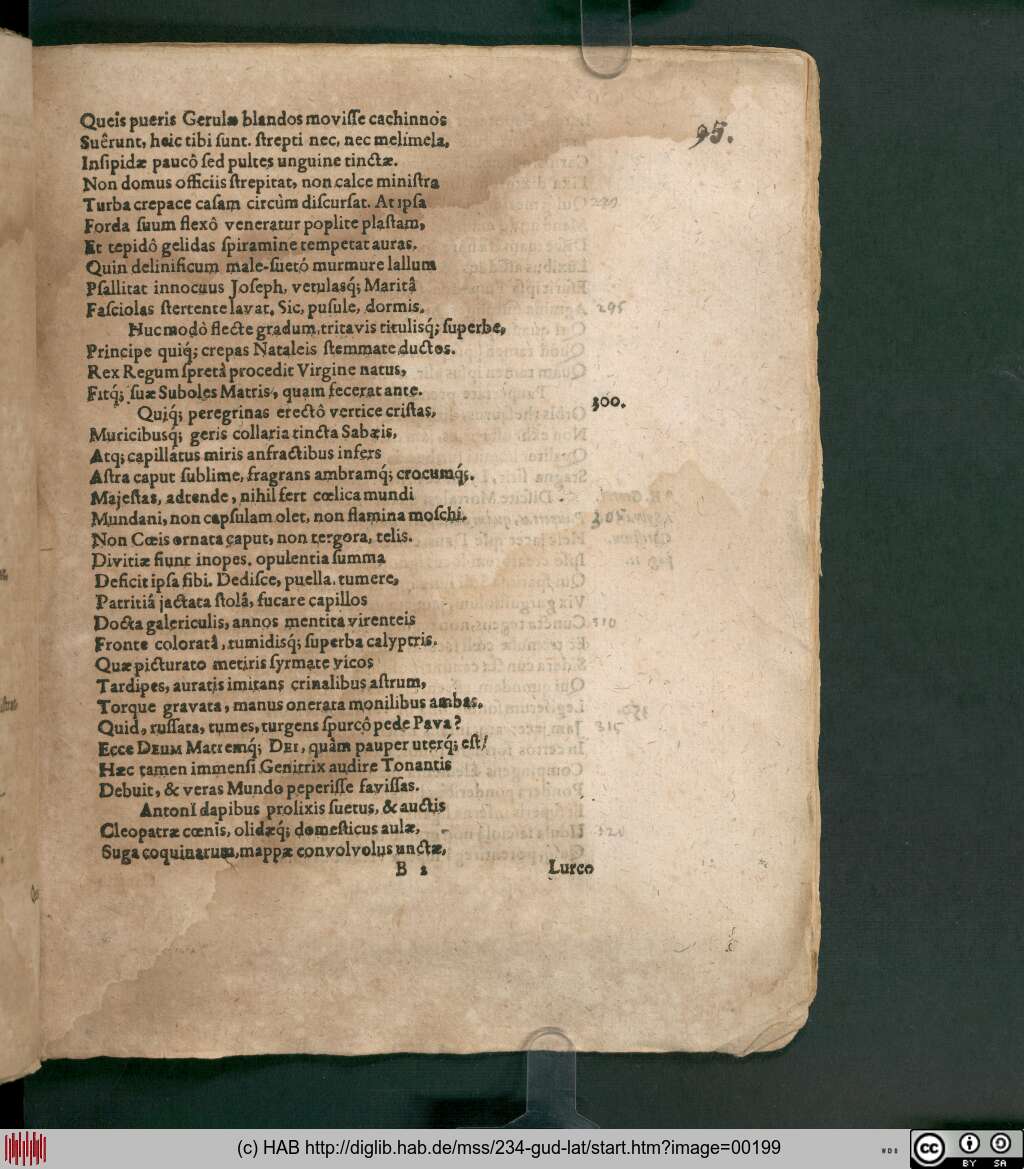 95.
Queis pueris Gerulæ blandos moviſſe cachinnos
Suêrunt, heic tibi ſunt. ſtrepti nec, nec melimela,
Inſipidæ paucô ſed pultes unguine tinctæ.
Non domus officiis ſtrepitat, non calce miniſtra
Turba crepace caſam circùm diſcurſat. At ipſa
Forda ſuum flexô veneratur poplite plaſtam,
Et tepidô gelidas ſpiramine temperat auras.
Quin delinificum male-ſuetó murmure lallum
Pſallitat innocuus Joſeph, vetulasq́; Maritâ
Faſciolas ſtertente lavat. Sic, puſule, dormis.
Huc modò flecte gradum, tritavis titulisq́; ſuperbe,
Principe quiq́; crepas Nataleis ſtemmate ductos.
Rex Regum ſpretâ procedit Virgine natus,
Fitq́; ſuæ Suboles Matris, quam fecerat ante.
Quiq́; peregrinas erectô vertice criſtas,
300.
Muricibusq́; geris collaria tincta Sabæis,
Atq; capillatus miris anfractibus infers
Aſtra caput ſublime, fragrans ambramq́; crocumq́;.
Majeſtas, adtende, nihil fert cœlica mundi
Mundani, non capſulam olet, non flamina moſchi.
Non Cœis ornata caput, non tergora, telis.
Divitiæ fiunt inopes, opulentia ſumma
Deficit ipſa ſibi. Dediſce, puella, tumere,
Patritiâ jactata ſtolâ, fucare capillos
Docta galericulis, annos mentita virenteis
Fronte coloratâ, tumidisq́; ſuperba calyptris.
Quæ picturato metiris ſyrmate vicos
Tardipes, auratis imitans crinalibus aſtrum,
Torque gravata, manus onerata monilibus ambas.
Quid, ruſſata, tumes, turgens ſpurcô pede Pava?
Ecce DEUM Matremq́; DEI, quàm pauper uterq́; eſt!
Hæc tamen immenſi Genitrix audire Tonantis
Debuit, & veras Mundo peperiſſe faviſſas.
AntonI dapibus prolixis ſuetus, & auctis
Cleopatræ cœnis, olidæq́; domeſticus aulæ,
Suga coquinarum, mappæ convolvolus unctæ,
B 2 Lurco
(c) HAB http://diglib.hab.de/mss/234-gud-lat/start.htm?image=00199
cc BY SA